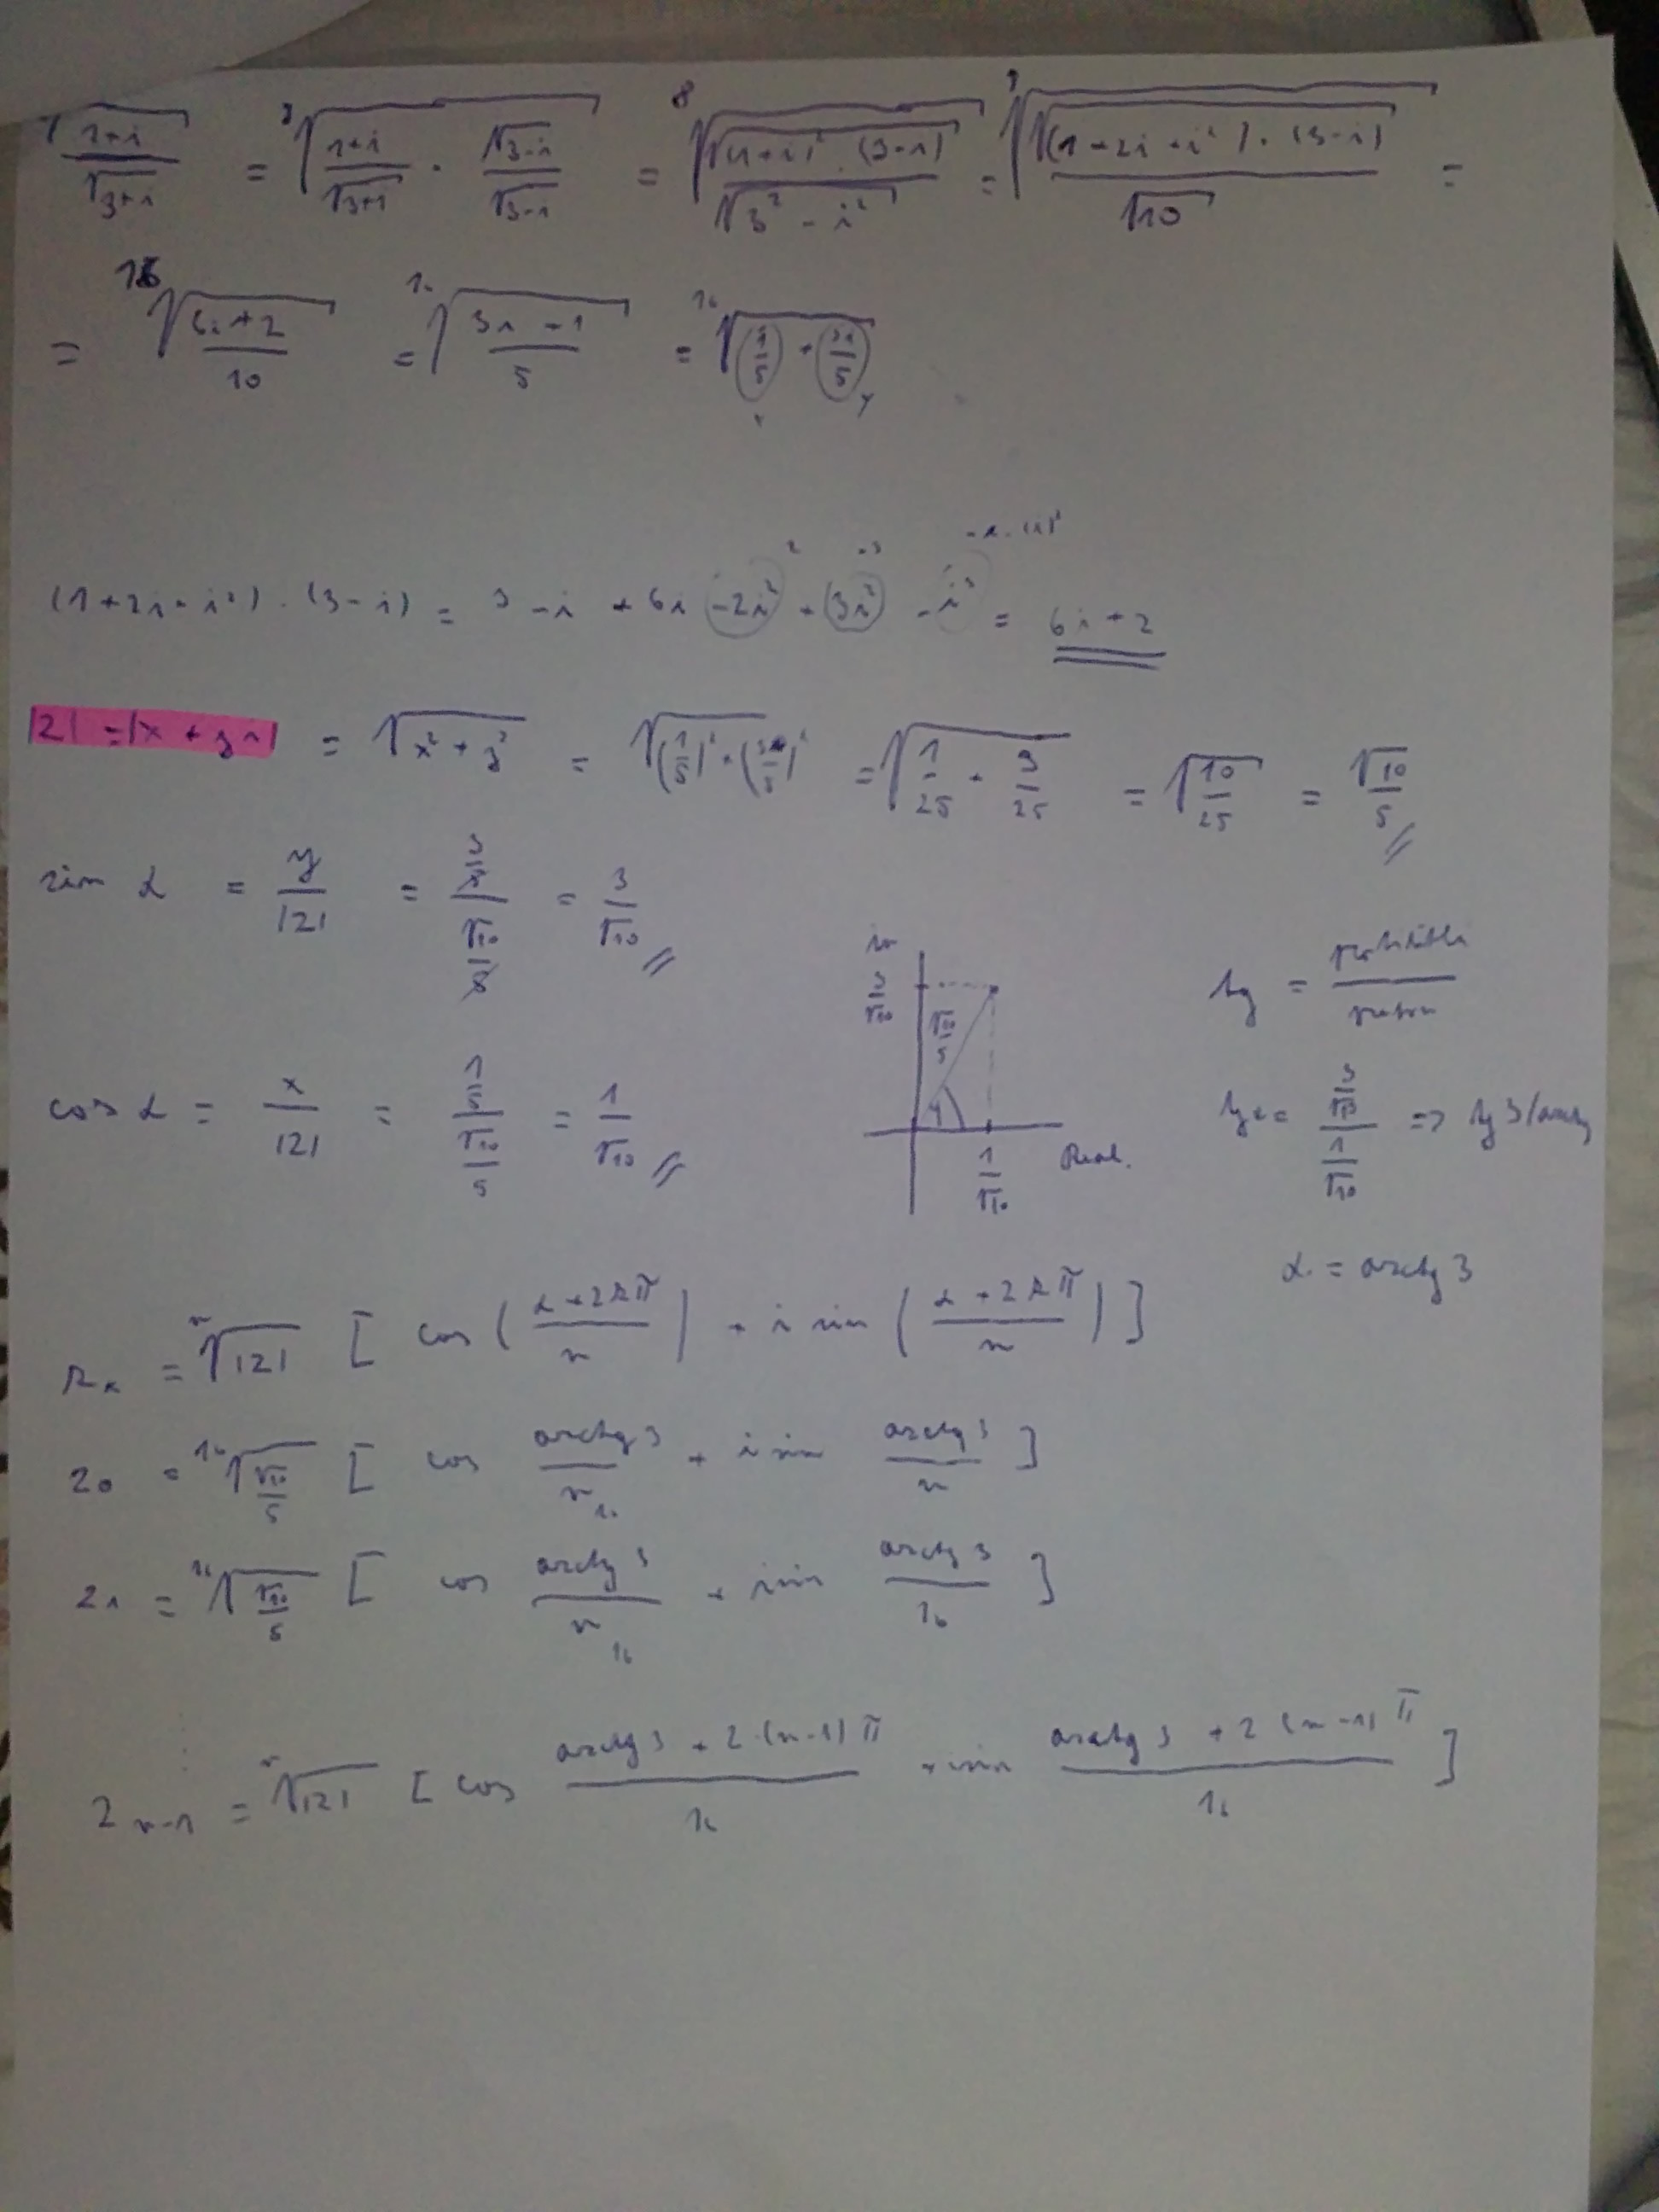 \sqrt{\frac{1+i}{\sqrt{3+i}}} = \sqrt{\frac{1+i}{\sqrt{3+i}} \cdot \frac{\sqrt{3-i}}{\sqrt{3-i}}} = \sqrt[8]{\frac{\sqrt{(1+i)^2 \cdot (3-i)}}{\sqrt{3^2 - i^2}}} = \sqrt{\frac{\sqrt{(1+2i+i^2) \cdot (3-i)}}{\sqrt{10}}} =
= \sqrt[16]{\frac{6i+2}{10}} = \sqrt[16]{\frac{3i+1}{5}} = \sqrt[16]{\frac{1}{5} + \frac{3i}{5}}
x y
(1+2i+i^2) \cdot (3-i) = 3 - i + 6i - 2i^2 + 3i^2 - i^3 = 6i+2
|z| = |x + yi| = \sqrt{x^2+y^2} = \sqrt{(\frac{1}{5})^2 + (\frac{3}{5})^2} = \sqrt{\frac{1}{25} + \frac{9}{25}} = \sqrt{\frac{10}{25}} = \frac{\sqrt{10}}{5}
sin α = \frac{y}{|z|} = \frac{\frac{3}{5}}{\frac{\sqrt{10}}{5}} = \frac{3}{\sqrt{10}}
im
\frac{3}{\sqrt{10}}
\frac{\sqrt{10}}{5}
tg =
cos α = \frac{x}{|z|} = \frac{\frac{1}{5}}{\frac{\sqrt{10}}{5}} = \frac{1}{\sqrt{10}}
\frac{1}{\sqrt{10}} Real.
tg α = \frac{\frac{3}{\sqrt{10}}}{\frac{1}{\sqrt{10}}} => tg 3 / arctg
α = arctg 3
z_k = \sqrt[n]{|z|} [ cos ( \frac{α+2kπ}{n} ) + i sin ( \frac{α+2kπ}{n} ) ]
z_0 = \sqrt[16]{\frac{\sqrt{10}}{5}} [ cos \frac{arctg 3}{n_{16}} + i sin \frac{arctg 3}{n} ]
z_1 = \sqrt[16]{\frac{\sqrt{10}}{5}} [ cos \frac{arctg 3}{n_{16}} + i sin \frac{arctg 3}{16} ]
z_{n-1} = \sqrt[n]{|z|} [ cos \frac{arctg 3 + 2 \cdot (n-1) π}{16} + i sin \frac{arctg 3 + 2 (n-1) π}{16} ]